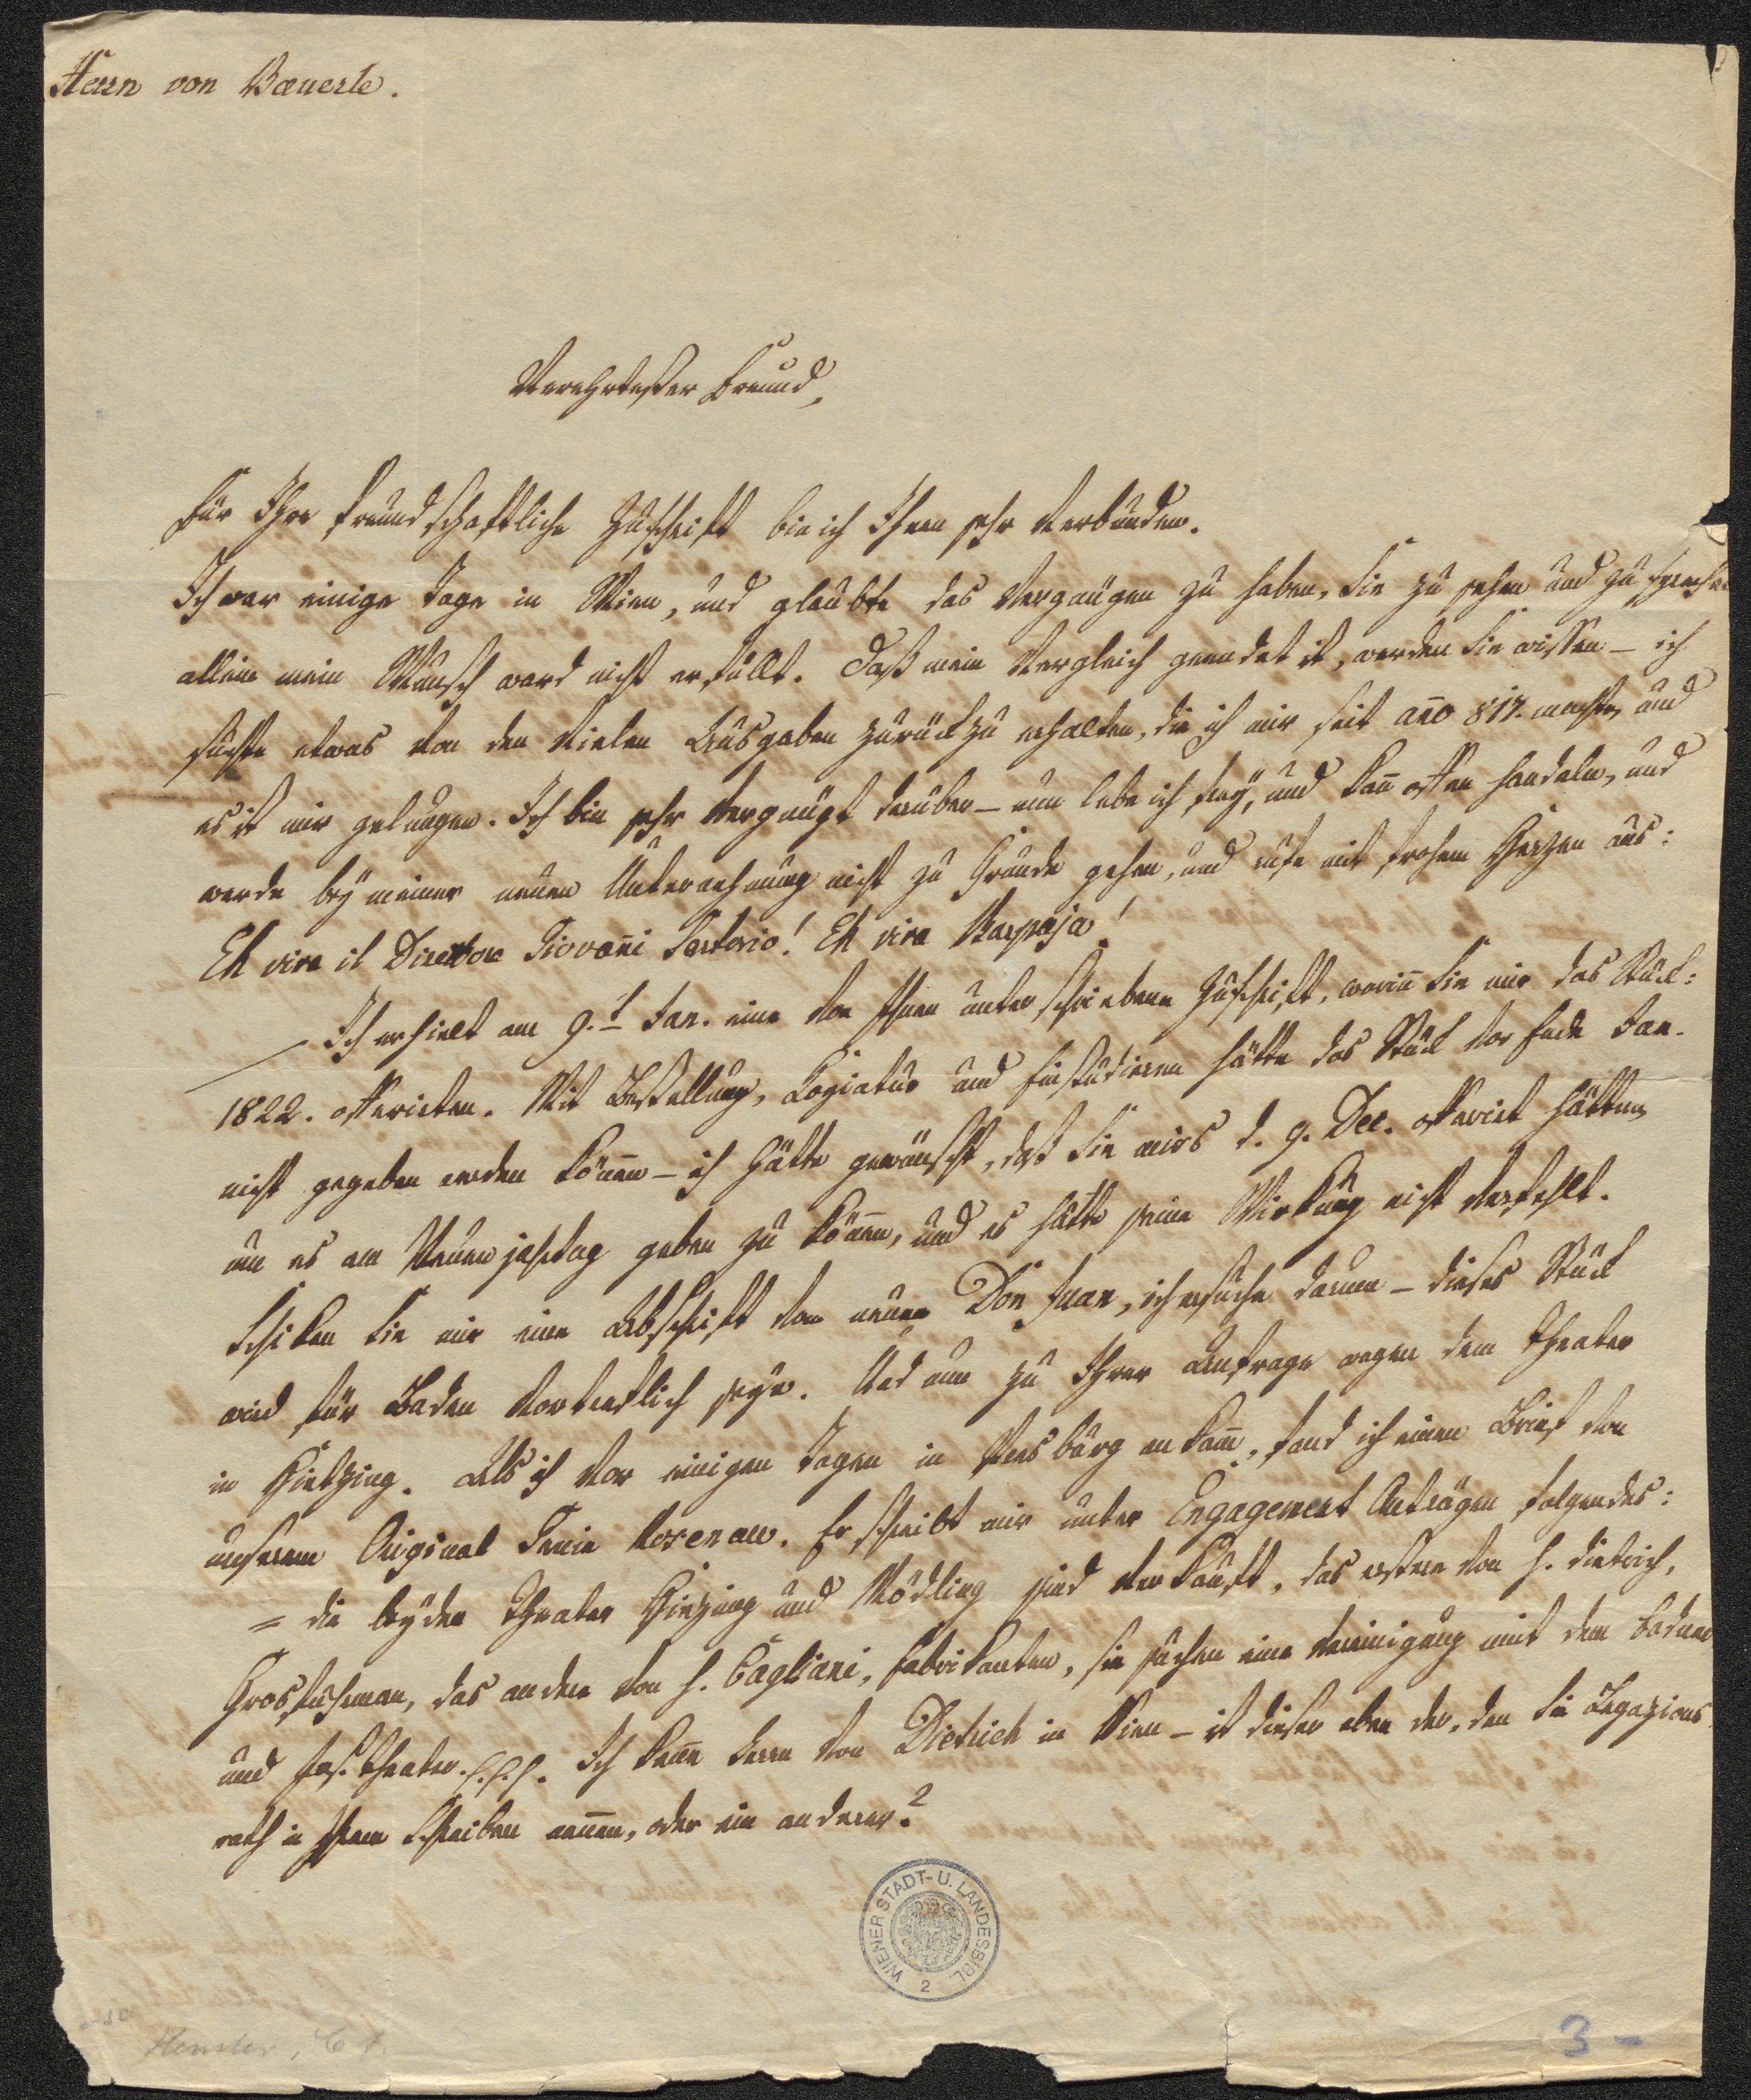 Herrn von Baeuerle.
Verehrtester Freund,
Für Ihre freundschaftliche Zuschrift bin ich Ihnen sehr verbunden.
Ich war einige Tage in Wien, und glaubte das Vergnügen zu haben, Sie zu sehen und zu sprechen
allein mein Wunsch ward nicht erfüllt. Daß mein Vergleich geendet ist, werden Sie wissen – ich
suchte etwas von den vielen Ausgaben zurück zu erhalten, die ich mir seit año 817. machte, und
es ist mir gelungen. Ich bin sehr vergnügt darüber – nun lebe ich frey, und kan̄ offen handeln, und
werde bey meiner neuen Unternehmung nicht zu Grunde gehen, und rufe mit frohem Herzen aus:
Eh viva il Direttore Giovan̄i Sartorio! Eh viva Barpaja!
Ich erhielt am 9.t Jan. eine von Ihnen unterschriebene Zuschrift, worin̄ Sie mir das Stück:
1822. offerirten. Mit Bestellung, Copiatur und Einstudieren hätte das Stück vor Ende Jan.
nicht gegeben werden kön̄en – ich hätte gewünscht, daß Sie mirs d. 9. Dec. offerirt hätten,
um es am Neuenjahrtag geben zu kön̄en, und es hätte seine Wirkung nicht verfehlt.
Schiken Sie mir eine Abschrift vom neuen Don Juan, ich ersuche darum – dieses Stück
wird für Baden vortreflich seyn. Und nun zu Ihrer Anfrage wegen dem Theater
in Hietzing. Als ich vor einigen Tagen in Presburg ankam̄, fand ich einen Brief von
unserem Original Genie Rosenau. Er schreibt mir unter Engagement Anträgen folgendes:
= die beyden Theater Hizing und Mödling sind verkauft, das erstere von H. Dietrich,
Grosfuhrman, das andere von H. Cagliani, Fabrikanten, sie suchen eine Vereinigung mit dem Badner
und Jos. Theater. p.p.p. Ich kenne Herrn von Dietrich in Wien – ist dieser eben der, den Sie Legazions
rath in Ihrem Schreiben nen̄en, oder ein anderer?
WIENER STADT- U. LANDESBIBL.
2
Hensler,
3 –